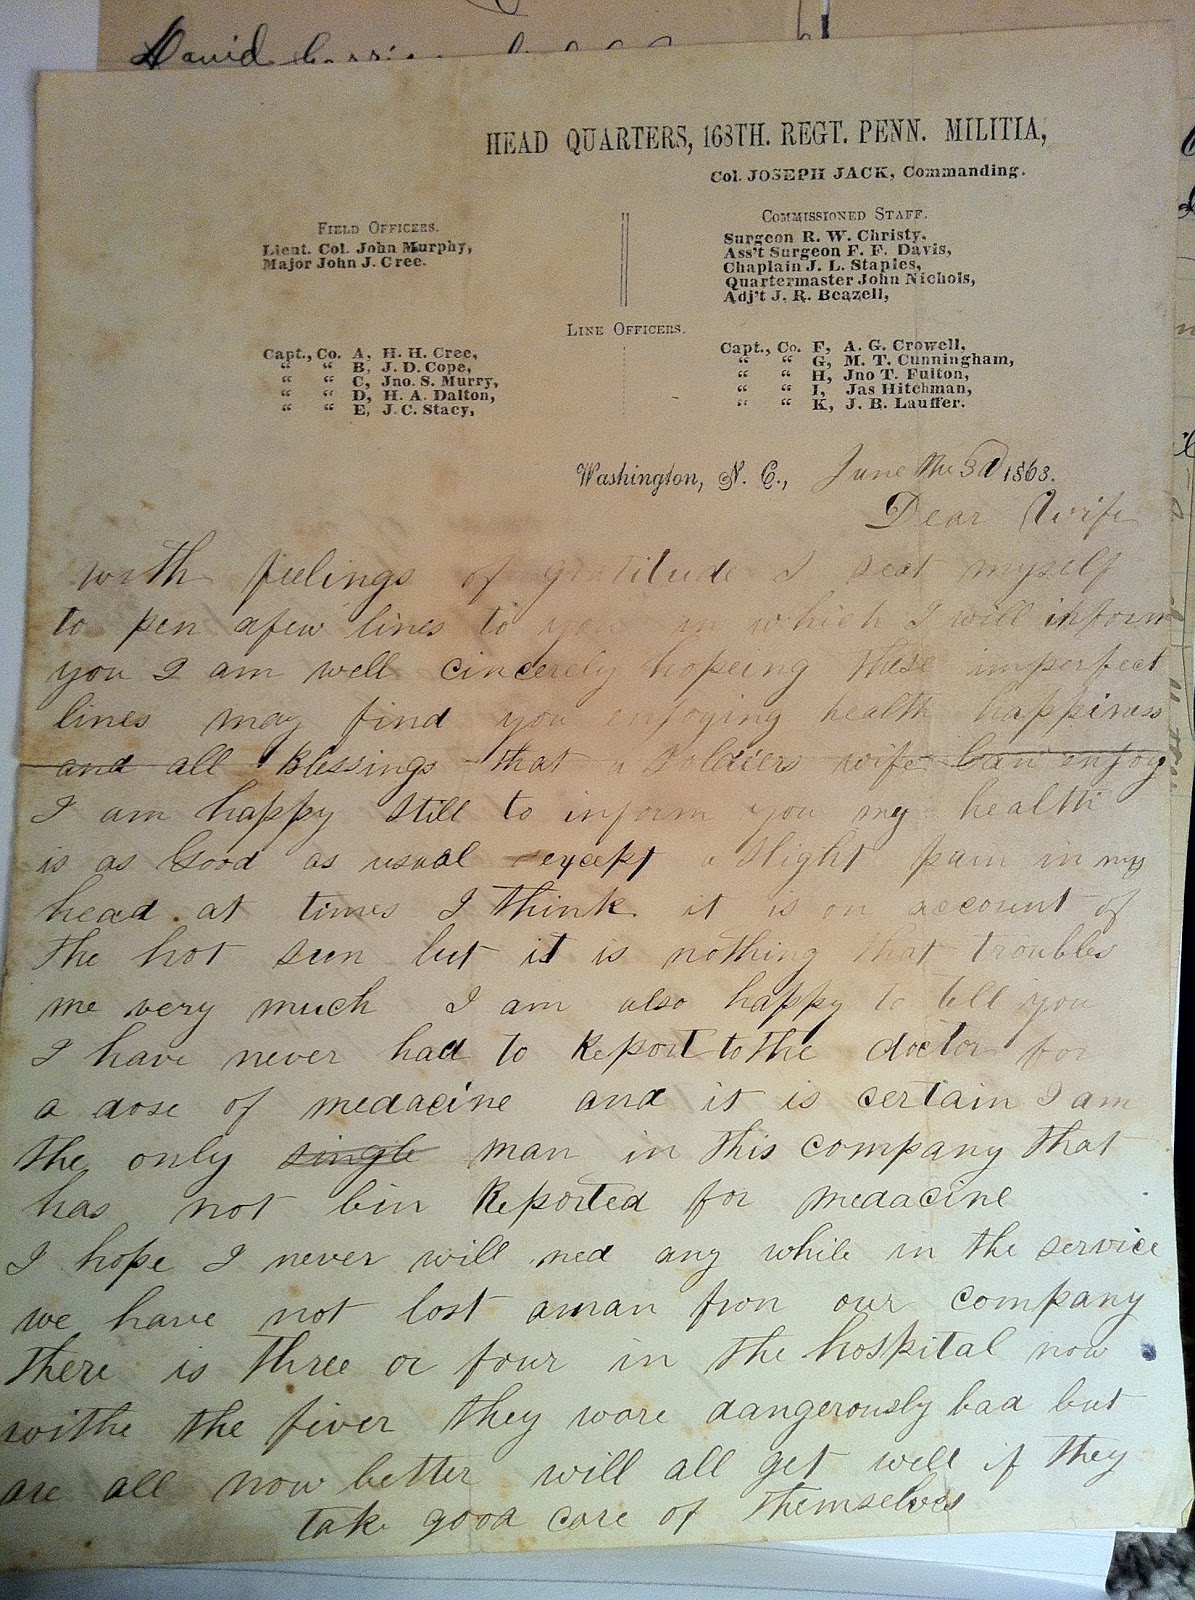 David
HEAD QUARTERS, 168TH. REGT. PENN. MILITIA,
Col. JOSEPH JACK, Commanding.
FIELD OFFICERS.
Lieut. Col. John Murphy,
Major John J. Cree.
COMMISSIONED STAFF.
Surgeon R. W. Christy.
Ass't Surgeon F. F. Davis,
Chaplain J. L. Staples,
Quartermaster John Nichols,
Adj't J. R. Beazell,
LINE OFFICERS.
Capt., Co. A, H. H. Cree,
“ “ B, J. D. Cope,
“ “ C, Jno. S. Murry,
“ “ D, H. A. Dalton,
“ “ E, J. C. Stacy,
Capt., Co. F, A. G. Crowell,
“ “ G, M. T. Cunningham,
“ “ H, Jno T. Fulton,
“ “ I, Jas Hitchman,
“ “ K, J. B. Lauffer.
Washington, N. C., June the 3d 1863.
Dear Wife
with feelings of gratitude I seat myself
to pen afew lines to you in which I will inform
you I am well cincerely hopeing these imperfect
lines may find you enjoying health happiness
and all Blessings that a Soldiers wife Can enjoy
I am happy Still to inform you my health
is as Good as usual except a Slight pain in my
head at times I think it is on account of
the hot sun but it is nothing that troubles
me very much I am also happy to tell you
I have never had to Report to the doctor for
a dose of medacine and it is certain I am
the only single man in this company that
has not bin Reported for medacine
I hope I never will ned any while in the service
we have not lost aman fron our company
there is three or four in the hospital now
withe the fiver they ware dangerously bad but
are all now better will all get well if they
take good care of themselves